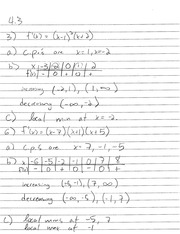 4.3
3) f'(x) = (x-1)²(x+2)
a) c.p.'s are x=1, x=-2
b) x | -3 | -2 | 0 | 1 | 2
f'(x) | - | 0 | + | 0 | +
increasing (-2,1), (1,∞)
decreasing (-∞,-2)
c) local min at x=-2.
6) f'(x) = (x-7)(x+1)(x+5)
a) c.p.s are x=-7, -1, -5
b) x | -6 | -5 | -2 | -1 | 0 | 7 | 8
f'(x) | - | 0 | + | 0 | - | 0 | +
increasing (-5,-1), (7,∞)
decreasing (-∞,-5), (-1,7)
c) local mins at -5, 7
local max at -1